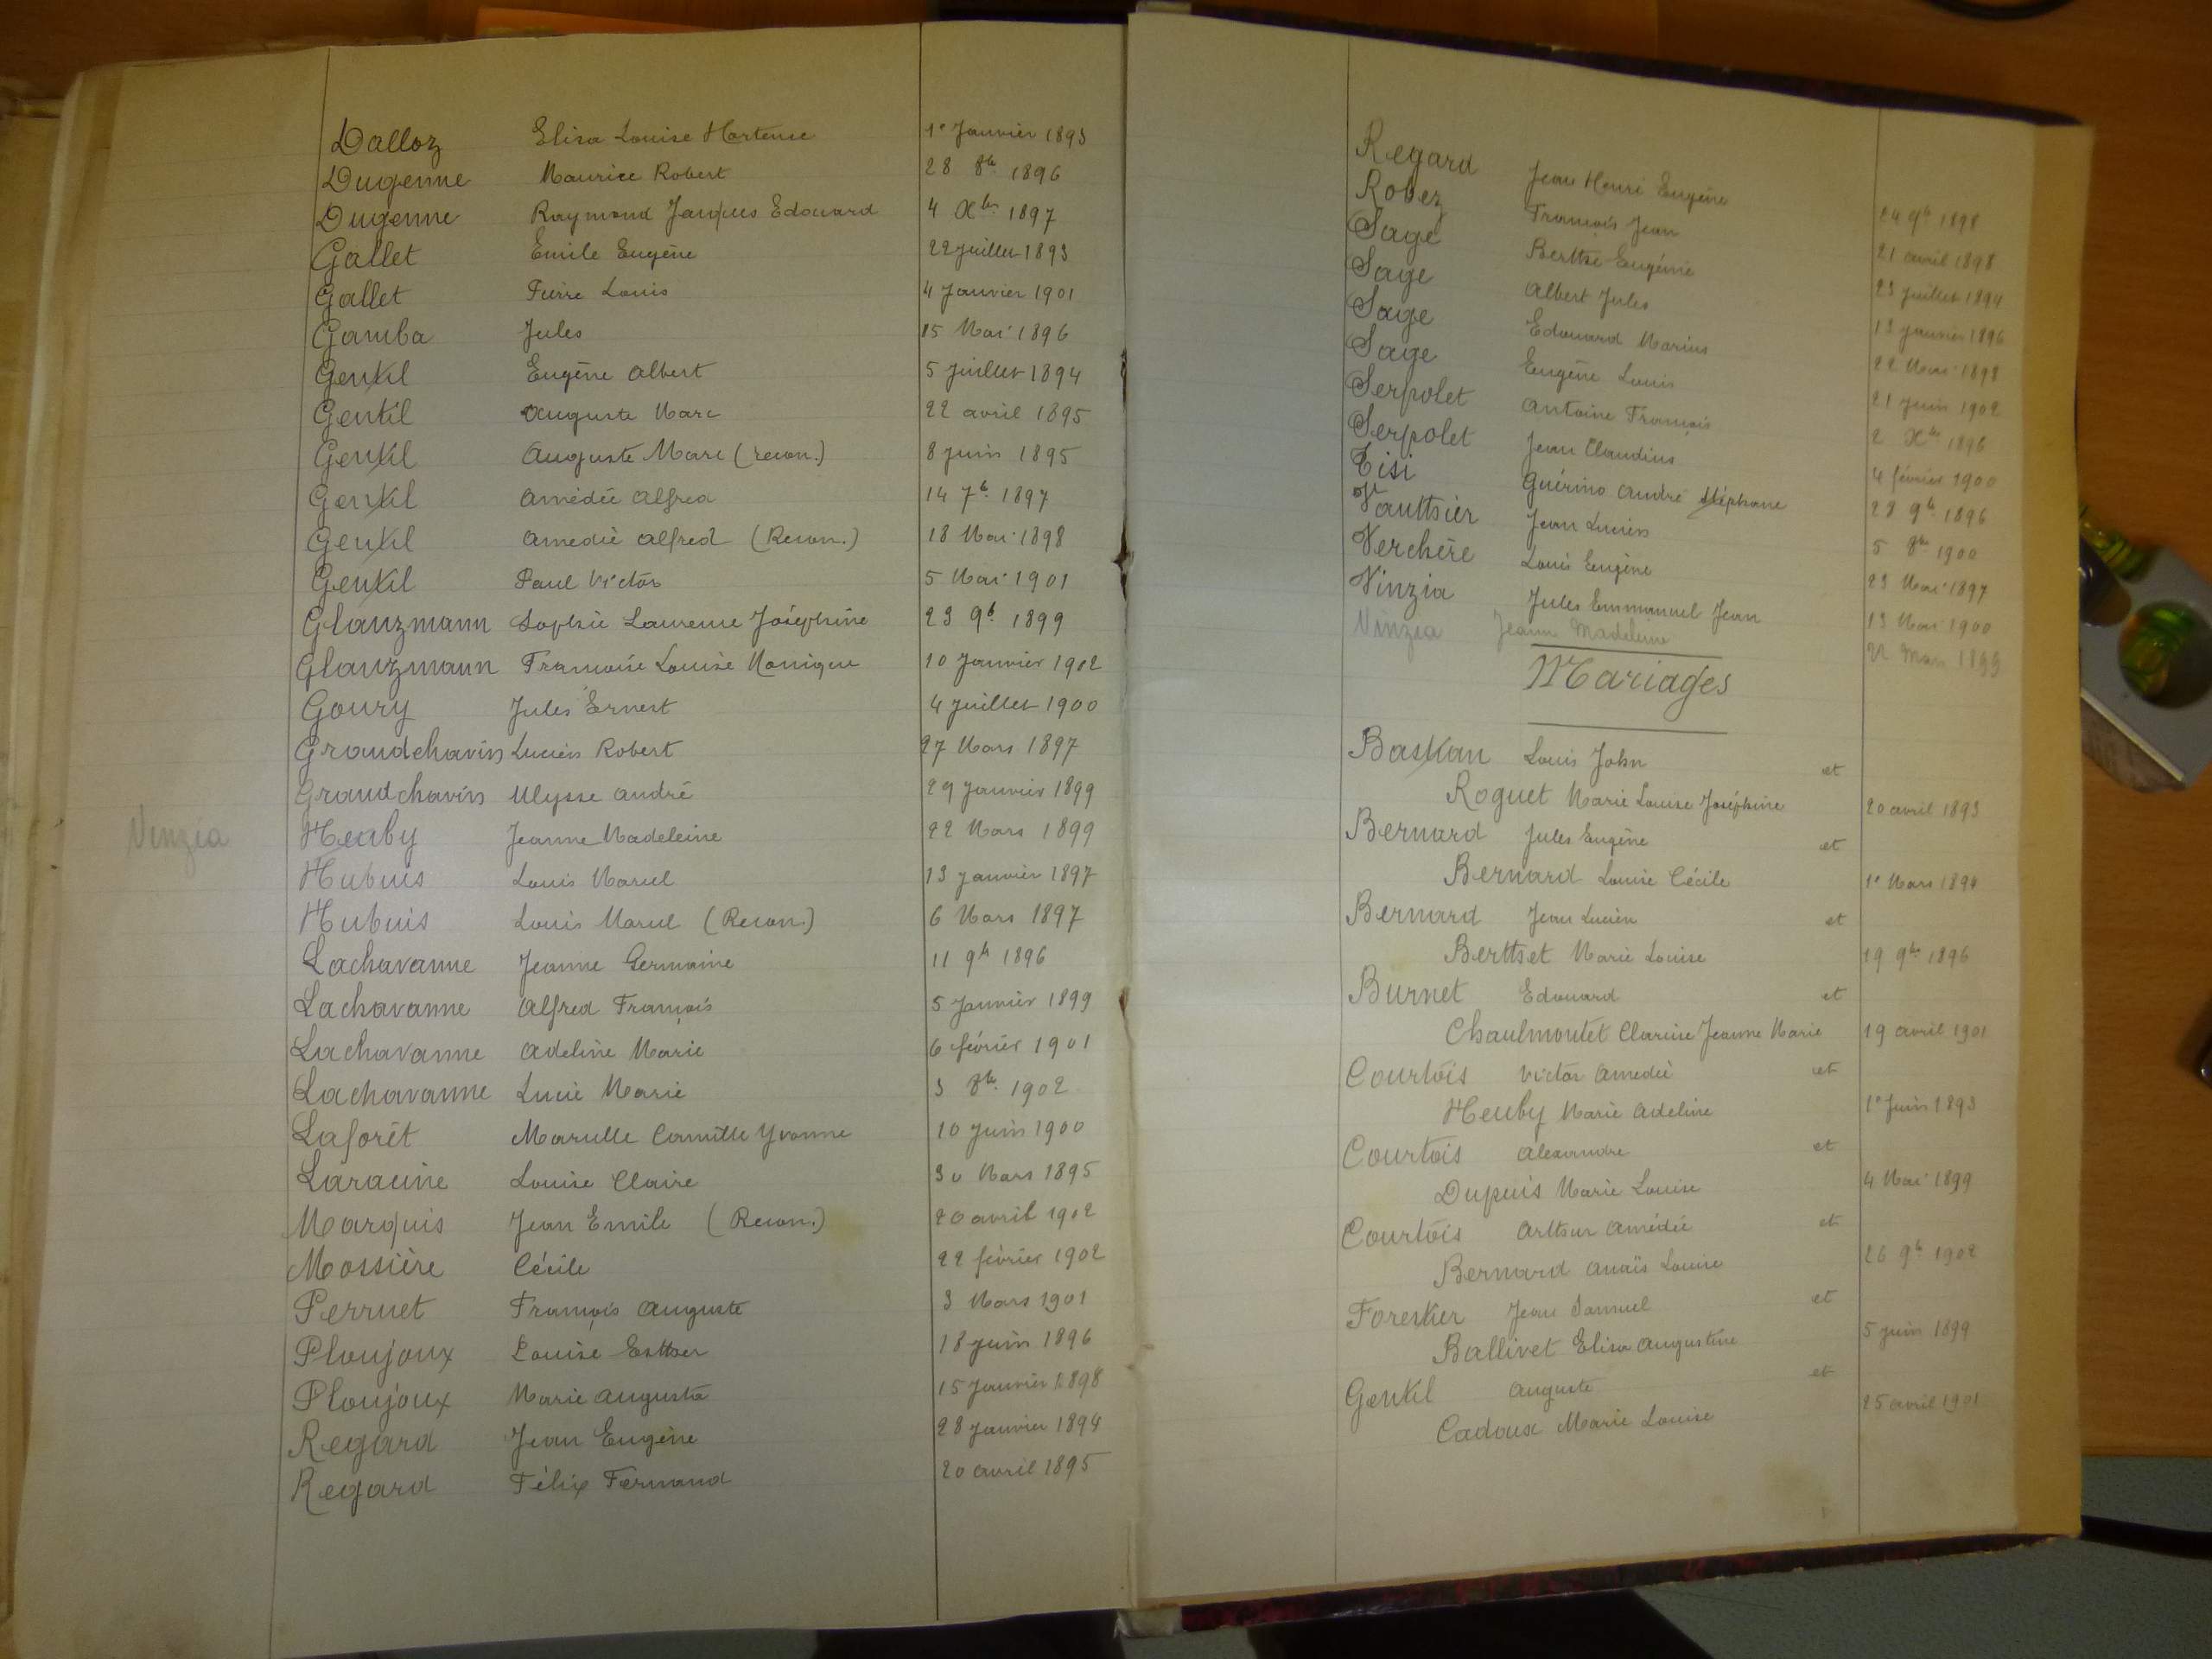 Dalloz Elisa Louise Hortense 1e Janvier 1893
Dugenne Maurice Robert 28 8bre 1896
Dugenne Raymond Jacques Edouard 4 Xbre 1897
Gallet Emile Eugène 22 Juillet 1893
Gallet Pierre Louis 4 Janvier 1901
Gamba Jules 15 Mai 1896
Gentil Eugène Albert 5 Juillet 1894
Gentil Auguste Marc 22 avril 1895
Gentil Auguste Marc (recon.) 8 Juin 1895
Gentil Amédée Alfred 14 7b. 1897
Gentil Amédée Alfred (Recon.) 18 Mai 1898
Gentil Paul Victor 5 Mai 1901
Glanzmann Sophie Laurence Joséphine 23 9b. 1899
Glanzmann Françoise Louise Monique 10 Janvier 1902
Goury Jules Ernest 4 Juillet 1900
Grandchavin Lucien Robert 27 Mars 1897
Grandchavin Ulysse André 29 Janvier 1899
Vinzia Heuby Jeanne Madeleine 22 Mars 1899
Hubuis Louis Marcel 13 Janvier 1897
Hubuis Louis Marcel (Recon.) 6 Mars 1897
Lachavanne Jeanne Germaine 11 9b 1896
Lachavanne Alfred François 5 Janvier 1899
Lachavanne Adeline Marie 6 février 1901
Lachavanne Lucie Marie 3 8bre 1902
Laforêt Marcelle Camille Yvonne 10 Juin 1900
Laracine Louise Claire 30 Mars 1895
Marquis Jean Emile (Recon.) 20 avril 1902
Mossière Cécile 22 février 1902
Perruet François Auguste 3 Mars 1901
Ploujoux Louise Esther 18 Juin 1896
Ploujoux Marie Augusta 15 Janvier 1898
Regard Jean Eugène 28 Janvier 1894
Regard Félix Fernand 20 avril 1895
Regard Jean Henri Eugène 24 9b 1898
Robez François Jean 21 avril 1898
Sage Berthe Eugénie 23 Juillet 1894
Sage Albert Jules 13 Janvier 1896
Sage Edouard Marius 22 Mai 1898
Sage Eugène Louis 21 Juin 1902
Serpolet Antoine François 2 Xbre 1896
Serpolet Jean Claudius 4 février 1900
Tisi Guérino André Stéphane 28 9b 1896
Vauthier Jean Lucien 5 8bre 1900
Verchère Louis Eugène 23 Mai 1897
Vinzia Jules Emmanuel Jean 13 Mai 1900
Vinzia Jeanne Madeleine 22 Mars 1899
Mariages
Bastian Louis John et
Roguet Marie Louise Joséphine 20 avril 1893
Bernard Jules Eugène et
Bernard Louise Cécile 1e Mars 1894
Bernard Jean Lucien et
Berthet Marie Louise 19 9bre 1896
Burnet Edouard et
Chaulmontet Clarisse Jeanne Marie 19 avril 1901
Courtois Victor Amédée et
Heuby Marie Adeline 1e Juin 1893
Courtois Alexandre et
Dupuis Marie Louise 4 Mai 1899
Courtois Arthur Amédée et
Bernard Anaïs Louise 26 9b 1902
Forestier Jean Samuel et
Ballivet Elisa Augustine 5 Juin 1899
Gentil Auguste et
Cadoux Marie Louise 25 avril 1901